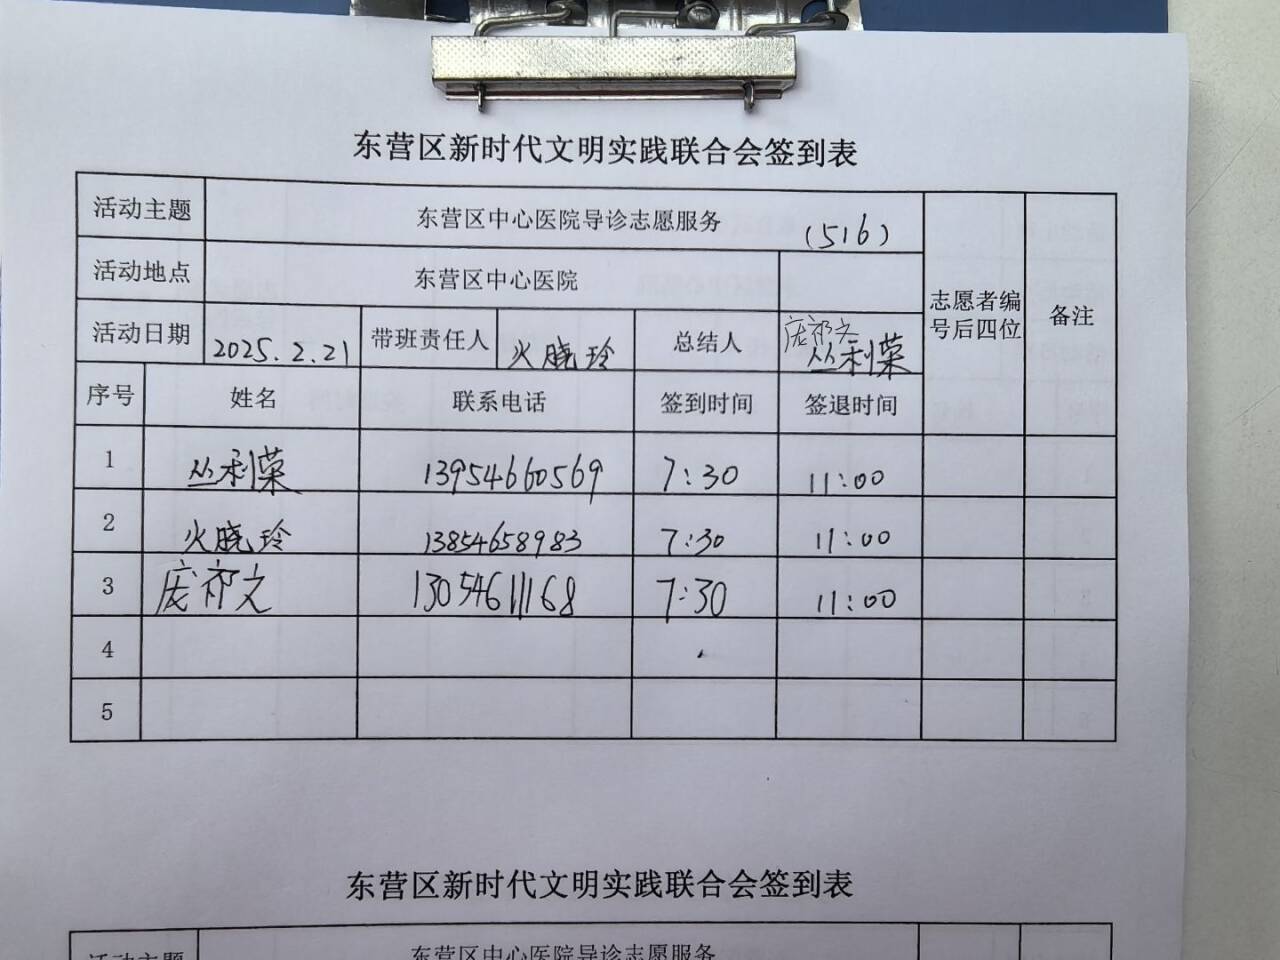 东营区新时代文明实践联合会签到表
活动主题 东营区中心医院导诊志愿服务 (516) 志愿者编号后四位 备注
活动地点 东营区中心医院
活动日期 2025.2.21 带班责任人 火晓玲 总结人 庞祁文 丛利荣
序号 姓名 联系电话 签到时间 签退时间
1 丛利荣 13954660569 7:30 11:00
2 火晓玲 13854658983 7:30 11:00
3 庞祁文 13054611168 7:30 11:00
4
5
东营区新时代文明实践联合会签到表
活动主题 东营区中心医院导诊志愿服务